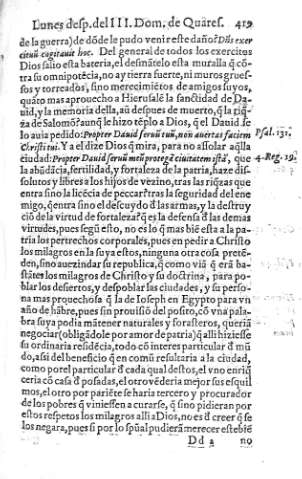 Lunes desp. del III. Dom. de Quares. 419
de la guerra) de dõde le pudo venir este daño? Dñs exer
cituũ cogitauit hoc. Del general de todos los exercitos
Dios salio esta bateria, el desmãtelo esta muralla q̃ cõ-
tra su omnipotẽcia, no ay tierra fuerte, ni muros grues-
sos y torreados, sino merecimiẽtos de amigos suyos,
quãto mas aprouecho a Hierusalẽ la sanctidad de Da-
uid, y la memoria della, aũ despues de muerto, q̃ la riq̃-
za de Salomõ? aunq̃ le hizo tẽplo a Dios, q̃ el Dauid se
lo auia pedido: Propter Dauid seruũ tuũ, non auertas faciem Psal. 131.
Christi tui. Y a el dize Dios q̃ mira, para no assolar aq̃lla
ciudad: Propter Dauid seruũ meũ protegã ciuitatem istã, que 4. Reg. 19.
la abũdãcia, fertilidad, y fortaleza de la patria, haze dis-
solutos y libres a los hijos de vezino, tras las riq̃zas que
entra sino la licẽcia de peccar? tras la seguridad del ene
migo, q̃ entra sino el descuydo d̃ las armas, y la destruy
ciõ de la virtud de fortaleza? q̃ es la defensa d̃ las demas
virtudes, pues segũ esto, no es lo q̃ mas biẽ esta a la pa-
tria los pertrechos corporales, pues en pedir a Christo
los milagros en la suya estos, ninguna otra cosa pretẽ-
den, sino auezindar su republica, q̃ como viã q̃ erã ba-
stãtes los milagros de Christo y su doctrina, para po-
blar los desiertos, y despoblar las ciudades, y su perso-
na mas prouechosa q̃ la de Ioseph en Egypto para vn
año de hãbre, pues sin prouisiõ del posito, cõ vna pala-
bra suya podia mãtener naturales y forasteros, queriã
negociar (obligãdole por amor de patria) q̃ alli hiziesse
su ordinaria residẽcia, todo cõ interes particular d̃ mũ
do, assi del beneficio q̃ en comũ resultaria a la ciudad,
como por el particular d̃ cada qual destos, el vno enriq̃
ceria cõ casa d̃ posadas, el otro vẽderia mejor sus esquil
mos, el otro por pariẽte se haria tercero y procurador
de los pobres q̃ viniessen a curarse, q̃ sino pidieran por
estos respetos los milagros alli a Dios, no es d̃ creer q̃ se
les negara, pues si por lo sp̃ual pudierã merecer este biẽ
Dd 2 no